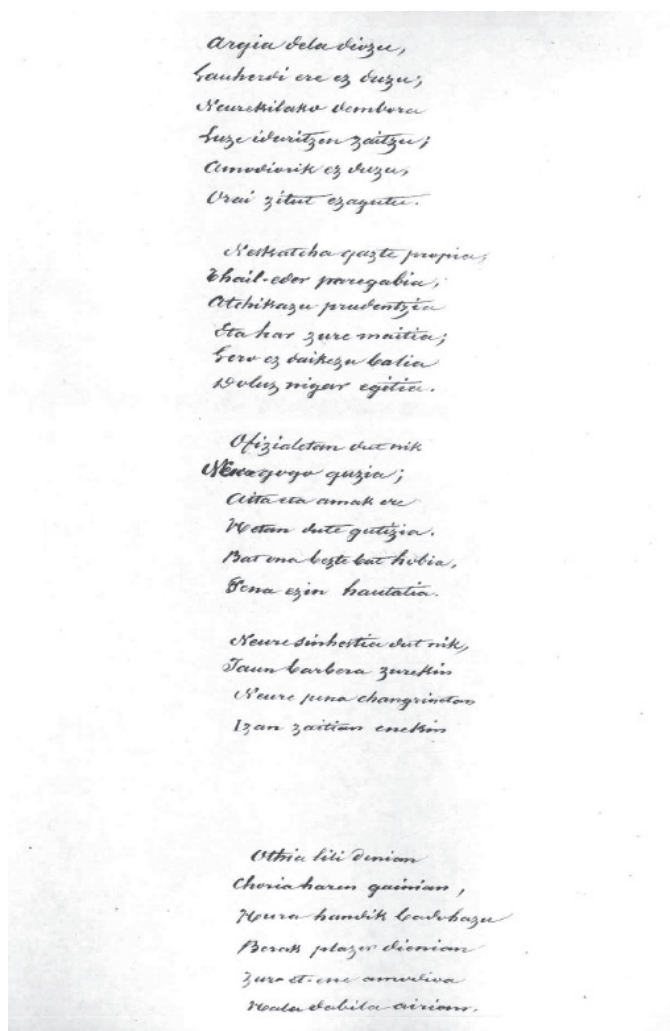 Argia dela diozu,
Gauherdi ere ez duzu;
Neurekilako dembora
Luze iduritzen zaitzu;
Amodiorik ez duzu,
Orai zitut ezagutu.
Neskatcha gazte propia,
Thail-eder paregabia,
Atchikazu prudentzia
Eta har zure maitia;
Gero ez daikezu balia
Doluz nigar egitia.
Ofizialetan dut nik
Nere gogo guzia;
Aita eta amak ere
Hetan dute gutizia.
Bat ona bezte bat hobia,
Pena ezin hautatia.
Neure sinhestia dut nik,
Jaun barbera zurekin
Neure pena changrinetan
Izan zaitian enekin
Othia lili denian
Choria haren gainian,
Hura handik badohazu
Berak plazer dienian
Zure et-ene amodioa
Hala dabila airian.